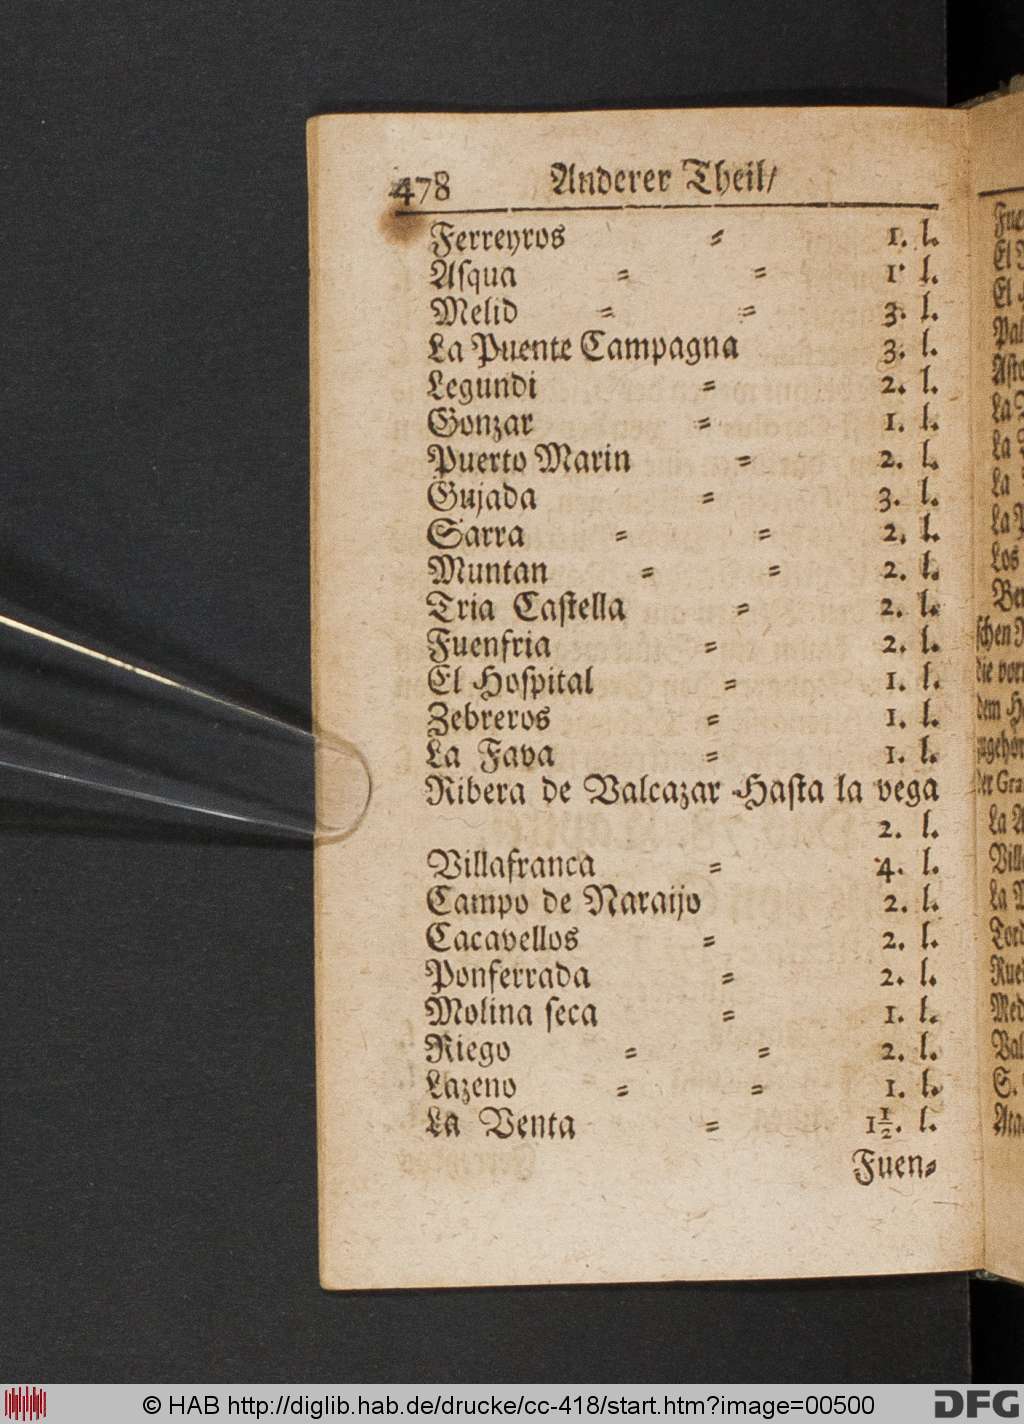 478 Anderer Theil/
Ferreyros = 1. l.
Aſqua = = 1. l.
Melid = = 3. l.
La Puente Campagna 3. l.
Legundi = 2. l.
Gonzar = 1. l.
Puerto Marin = 2. l.
Gujada = 3. l.
Sarra = = 2. l.
Muntan = = 2. l.
Tria Caſtella = 2. l.
Fuenfria = 2. l.
El Hoſpital = 1. l.
Zebreros = 1. l.
La Fava = 1. l.
Ribera de Valcazar Haſta la vega
2. l.
Villafranca = 4. l.
Campo de Naraijo 2. l.
Cacavellos = 2. l.
Ponferrada = 2. l.
Molina ſeca = 1. l.
Riego = = 2. l.
Lazeno = = 1. l.
La Venta = 1½. l.
Fuen=
© HAB http://diglib.hab.de/drucke/cc-418/start.htm?image=00500
DFG